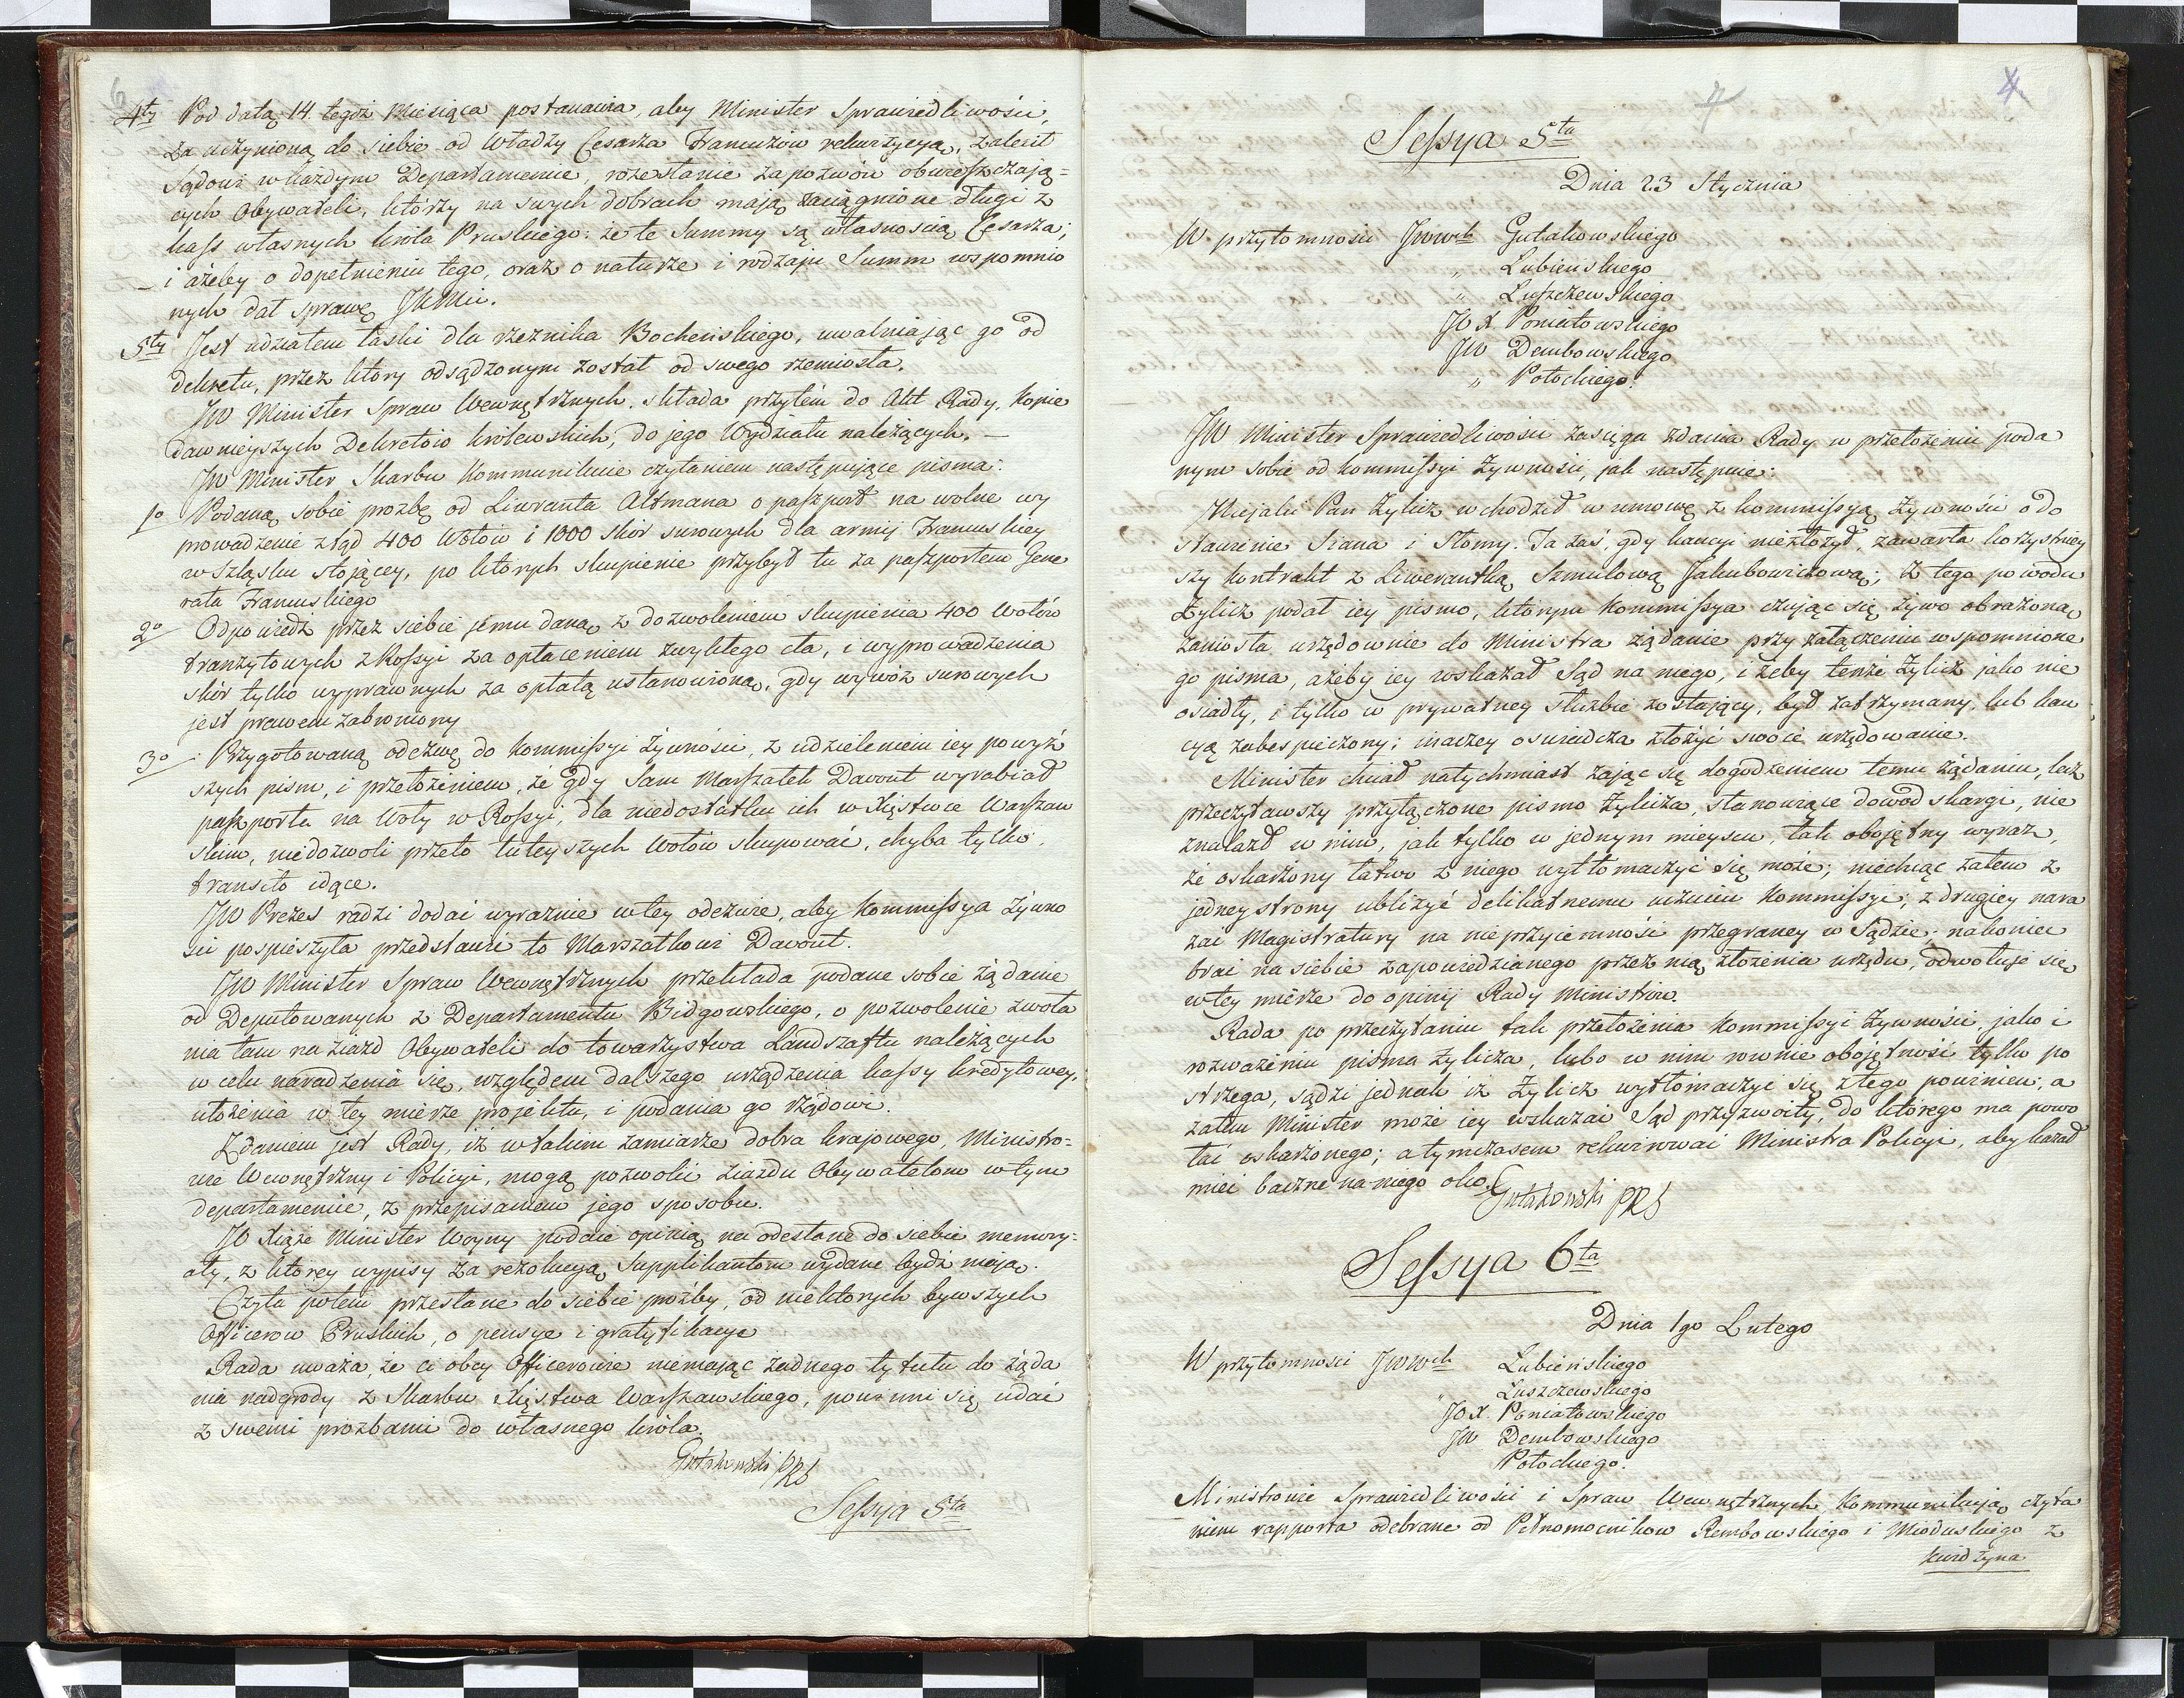 6
4ty Pod datą 14. tegoż Miesiąca postanawia, aby Minister Sprawiedliwości,
za uczynioną do siebie od Władzy Cesarza Francuzów rekwizycyą, zalecił
Sądowi w każdym Departamencie, rozesłanie zapozwów obwieszczają=
cych Obywateli, którzy na swych dobrach mają zaciągnione długi z
kass własnych króla Pruskiego: że te Summy są własnością Cesarza;
i ażeby o dopełnieniu tego, oraz o naturze i rodzaju Summ wspomnio
nych dał sprawę JKMci.
5ty Jest udziałem łaski dla rzeznika Bocheńskiego, uwalniając go od
dekretu, przez który odsądzonym został od swego rzemiosła.
JW Minister Spraw Wewnętrznych, składa przytém do Akt Rady, Kopie
dawnieyszych Dekretów królewskich, do jego Wydziału należących. —
JW Minister Skarbu kommunikuie czytaniem następuiące pisma:
1o Podaną sobie prozbę od Liwranta Altmana o paszport na wolne wy
prowadzenie ztąd 400 Wołów i 1000 skór surowych dla armij Francuskiey
w Szląsku stojącey, po których skupienie przybył tu za paszportem Gene
rała Francuskiego
2o Odpowiedz przez siebie jému daną z dozwoleniem skupienia 400 Wołów
tranzytowych z Rossyi za opłaceniem zwykłego cła, i wyprowadzenia
skór tylko wyprawnych za opłatą ustanowioną, gdy wywóz surowych
jest prawem zabroniony
3o Przygotowaną odezwę do Kommissyi Żywności, z udzieleniem iey powyż
szych pism, i przełożeniem, że gdy Sam Marszałek Davout wyrabiał
paszporta na Woły w Rossyi, dla niedostatku ich w Xięstwie Warszaw
skim, niedozwoli przeto tuteyszych Wołów skupować, chyba tylko
transito idące.
JW Prezes radzi dodać wyraznie w tey odezwie, aby Kommissya Żywno
ści pospieszyła przedstawić to Marszałkowi Davout.
JW Minister Spraw Wewnętrznych przekłada podane sobie żądanie
od Deputowanych z Departamentu Bidgowskiego, o pozwolenie zwoła
nia tam na ziazd Obywateli do towarzystwa Landszaftu należących
w celu naradzenia się, względem dalszego urządzenia kassy kredytowey,
ułożenia w tey mierze projektu, i podania go rządowi.
Zdaniem jest Rady, iż w takim zamiarze dobra krajowego, Ministro=
wie Wewnętrzny i Policyi, mogą pozwolić ziazdu Obywatelom w tym
departamencie, z przepisaniem jego sposobu.
JO Xiąże Minister Woyny podaie opinią na odesłane do siebie memory=
ały, z którey wypisy za rezolucyą Supplikantom wydane bydź mają.
Czyta potem przesłane do siebie proźby, od niektorych bywszych
Officerow Pruskich, o pensye i gratyfikacye
Rada uważa, że ci obcy Officerowie niemając żadnego tytułu do żąda
nia nadgrody z Skarbu Xięstwa Warszawskiego, powinni się udać
z swemi prozbami do własnego króla.
Gutakowski PRS
Sessya 5ta
7
4
Sessya 5ta
Dnia 23 Stycznia
W przytomności JWWch Gutakowskiego
" Lubienskiego
" Luszczewskiego
JO X Poniatowskiego
JW Dembowskiego
" Potockiego.
JW Minister Sprawiedliwości zasięga zdania Rady w przełożeniu poda
nym sobie od Kommissyi Żywności, jak następuie:
Niejaki Pan Żylicz wchodził w umowę z kommissyą Żywności o do
stawienie Siana i Słomy. Ta zaś, gdy kaucyi niezłożył, zawarła korzystniey
szy kontrakt z Liwerantką Szmulową Jakubowiczową; z tego powodu
Żylicz podał iey pismo, którym Kommissya czując się żywo obrażoną
zaniosła urzędownie do Ministra żądanie przy załączeniu wspomnione
go pisma, ażeby iey wskazał Sąd na niego, i żeby tenże Żylicz jako nie
osiadły, i tylko w prywatney służbie zostający, był zatrzymany, lub kau
cyą zabespieczony; inaczey oświadcza złożyć swoie urzędowanie.
Minister chciał natychmiast zająć się dogodzeniem temu żądaniu, lecz
przeczytawszy przyłączone pismo Żylicza, stanowiące dowod skargi, nie
znalazł w nim, jak tylko w jednym mieyscu, tak obojętny wyraz,
że oskarżony łatwo z niego wytłomaczyć się może; niechcąc zatem z
jedney strony ubliżyć delikatnemu uczuciu Kommissyi; z drugiey nara
zać Magistratury na nieprzyiemność przegraney w Sądzie; nakoniec
brać na siebie zapowiedzianego przez nią złożenia urzędu, odwołuje się
w tey mierze do opinij Rady Ministrów.
Rada po przeczytaniu tak przełożenia Kommissyi Żywności, jako i
rozważeniu pisma Żylicza, lubo w nim rownie obojętność tylko po
strzega, sądzi jednak iż Żylicz wytłomaczyć się z tego powinien, a
zatem Minister może iey wskazać Sąd przyzwoity, do którego ma powo
łać oskarżonego; a tymczasem rekwirować Ministra Policyi, aby kazał
mieć baczne na niego oko.
Gutakowski PRS
Sessya 6ta
Dnia 1go Lutego
W przytomności JWWch Lubieńskiego
" Luszczewskiego
JO X. Poniatowskiego
JW Dembowskiego
Potockiego.
Ministrowie Sprawiedliwości i Spraw Wewnętrznych kommunikują czyta
niem rapporta odebrane od Pełnomocnikow Rembowskiego i Mioduskiego z
Kwidzyna